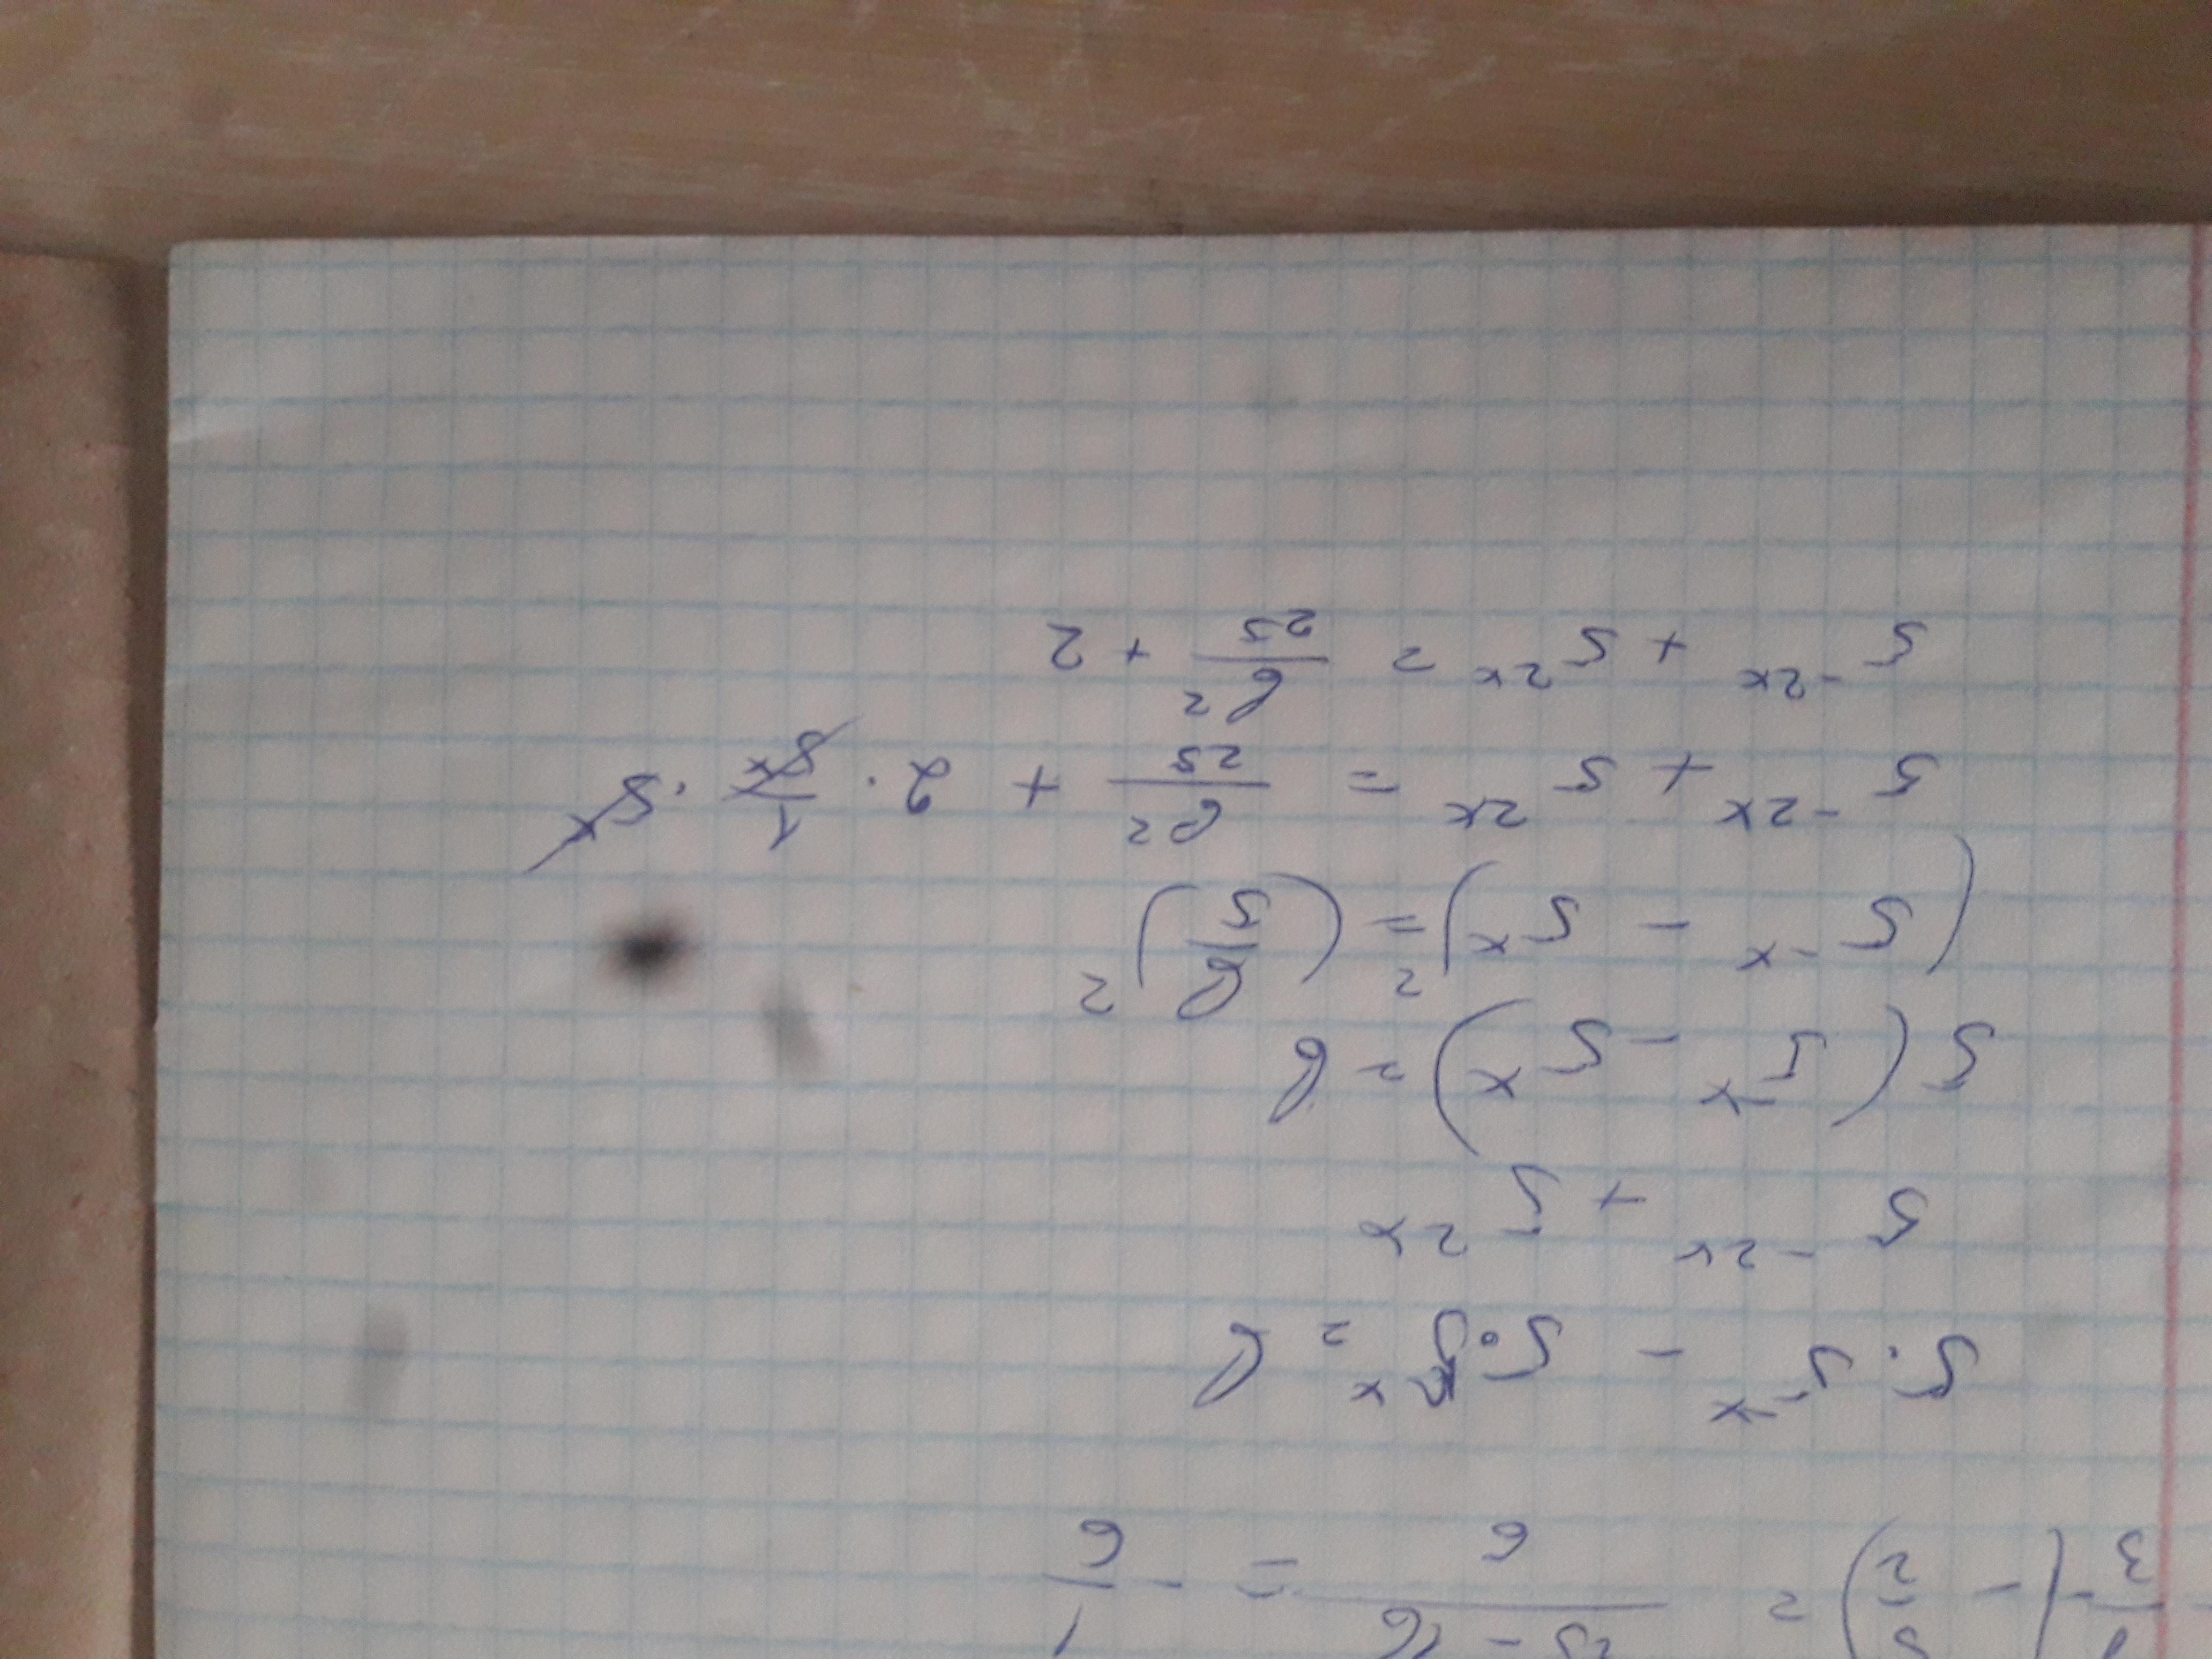 3 - (- 2) = 6 = - 1/6
5 · 5^-x - 5 · 5^x = b
5^-2x + 5^2x
5 (5^-x - 5^x) = b
(5^-x - 5^x)^2 = (b/5)^2
5^-2x + 5^2x = b^2/25 + 2 · 1/5^x · 5^x
5^-2x + 5^2x = b^2/25 + 2